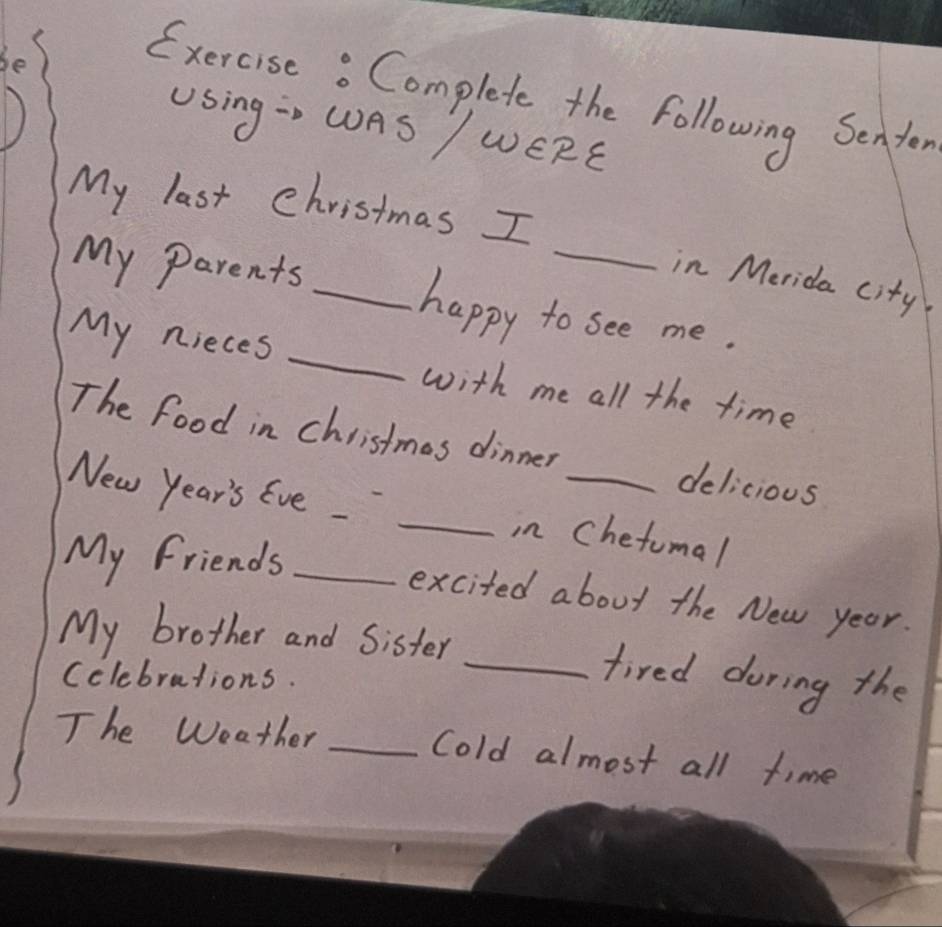 be
Exercise : Complete the following Senten
using → WAS / WERE
My last Christmas I ____ in Merida city.
My parents ____ happy to see me.
My nieces ____ with me all the time
The food in christmas dinner ____ delicious
New Year's Eve - - ____ in Chetumal
My friends ____ excited about the New year.
My brother and Sister ____ tired during the
Celebrations.
The Weather ____ Cold almost all time